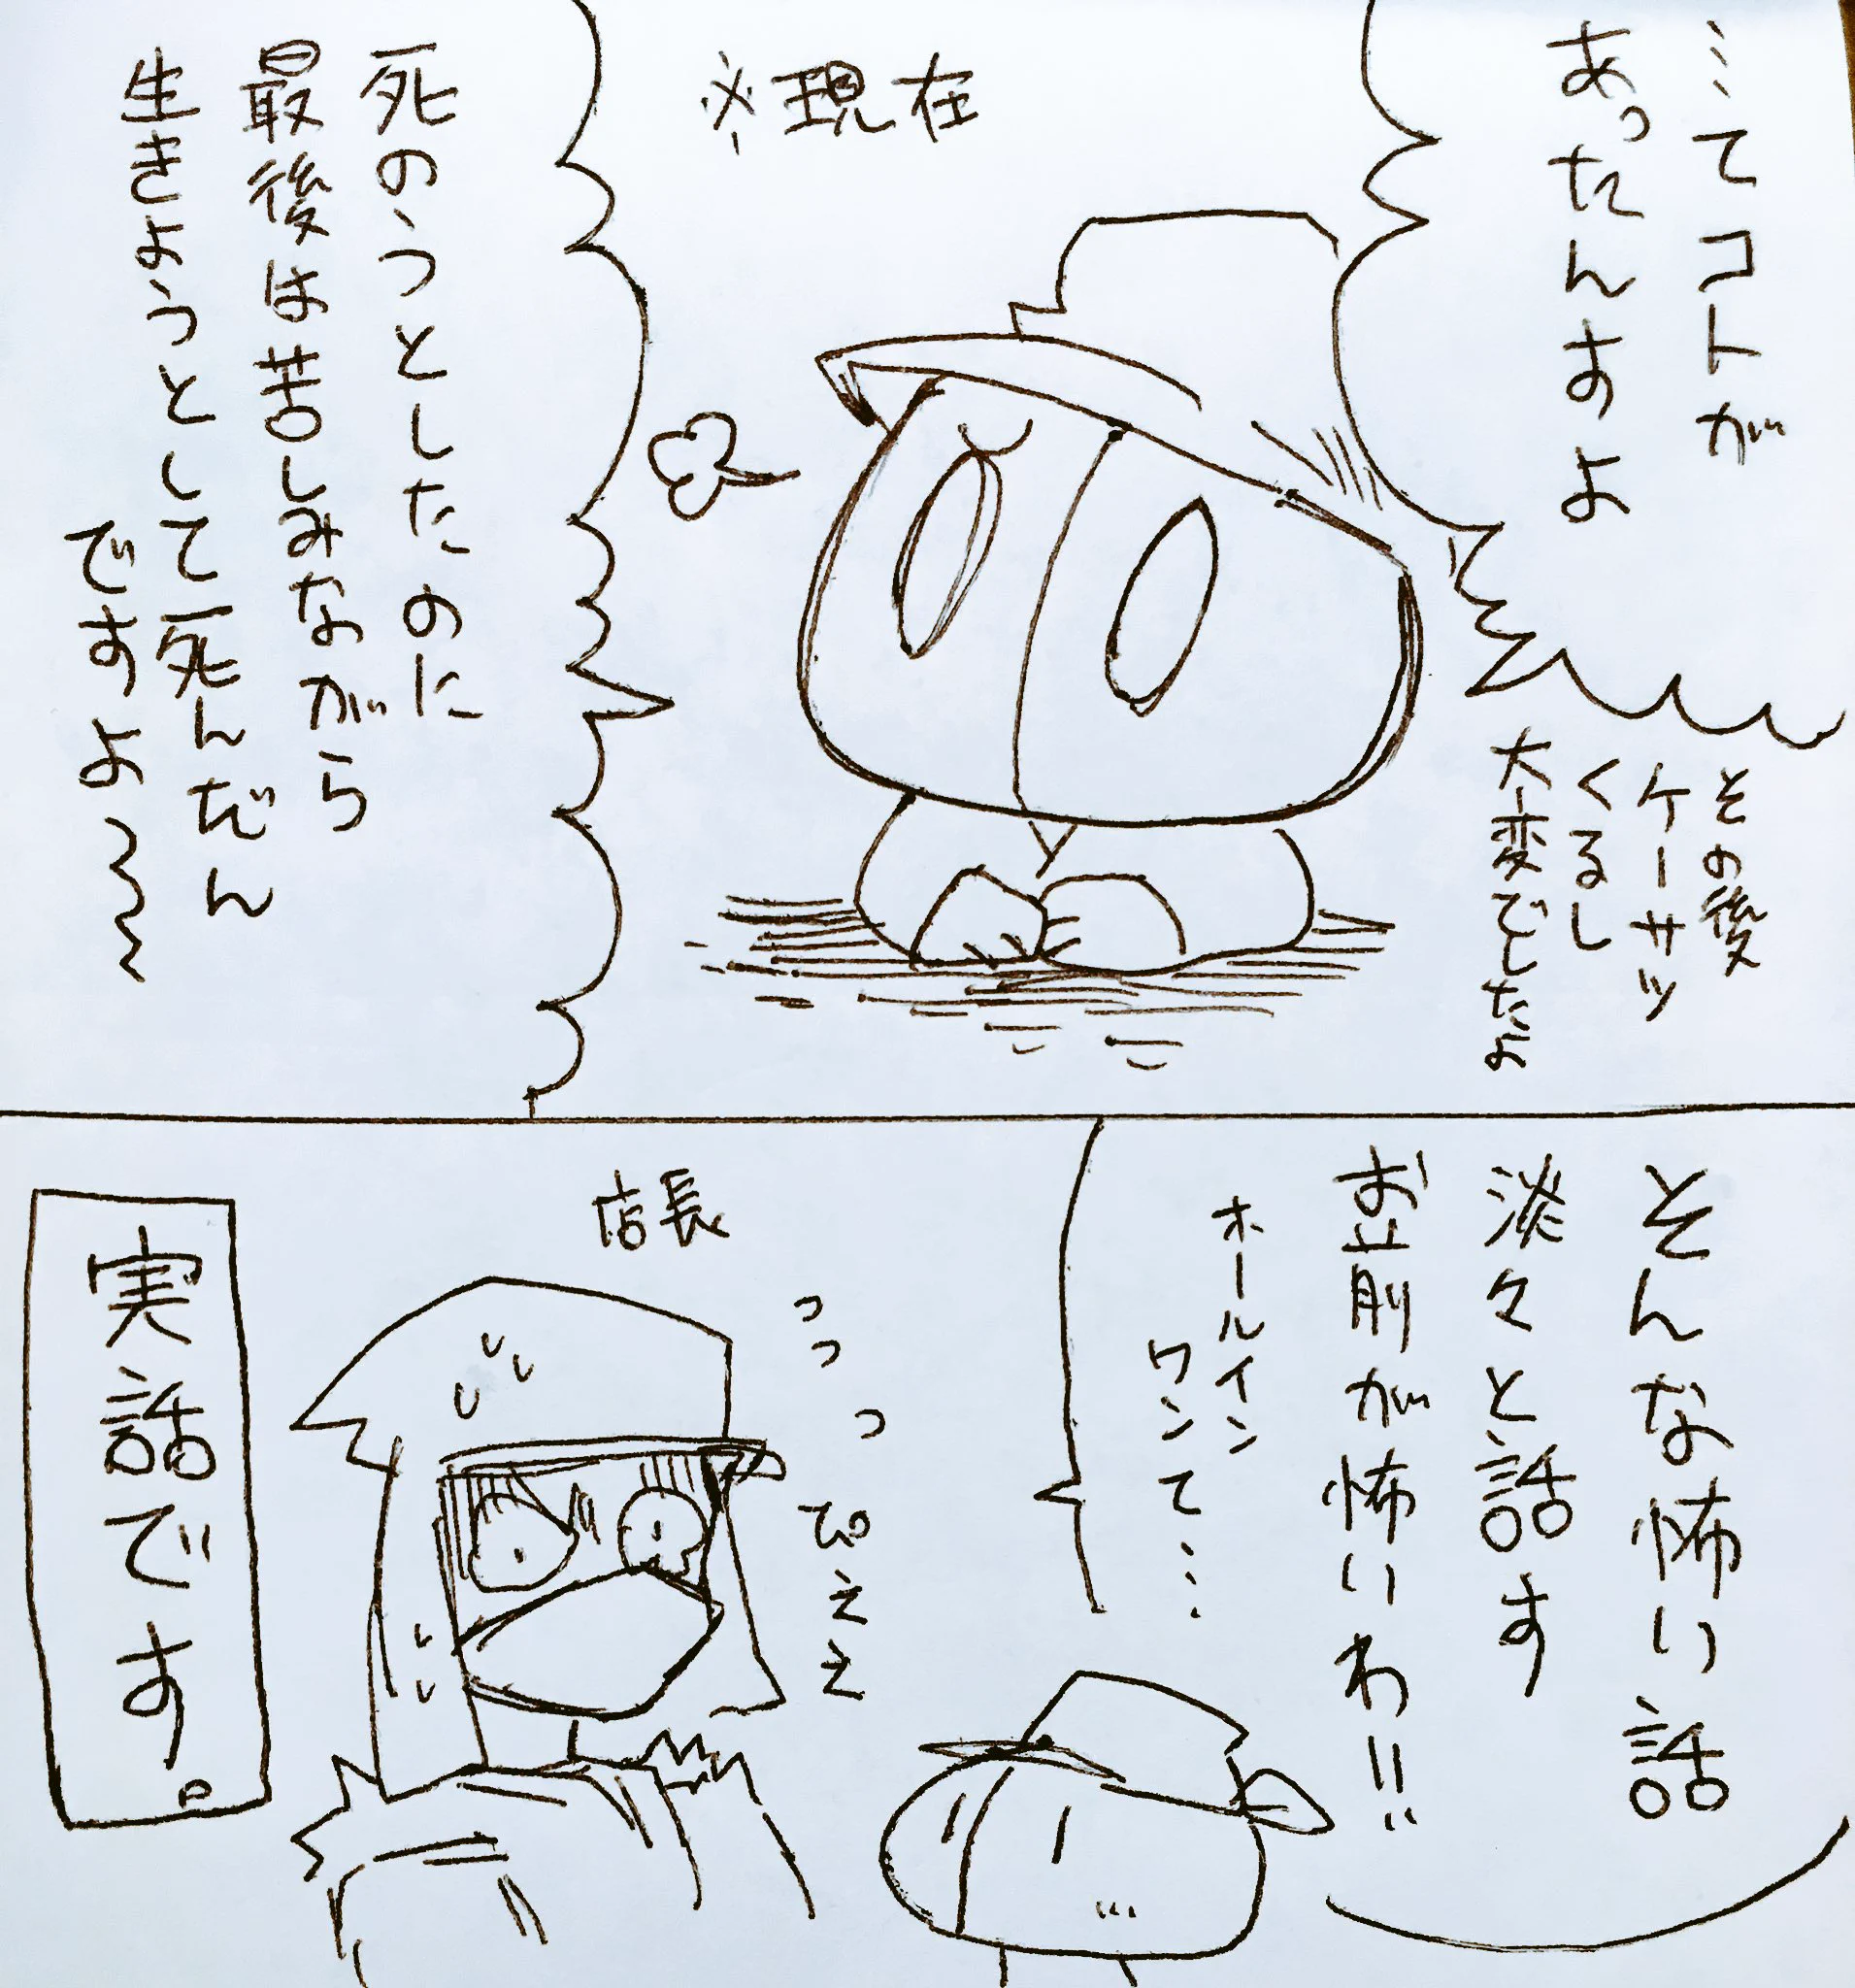 …てコトが
あったんすよ
その後
ケーサツ
くるし
大変でしたよ
※現在
死のうとしたのに
最後は苦しみながら
生きようとして死んだん
ですよ〜〜
そんな怖い話
淡々と話す
お前が怖いわ!!
ホールイン
ワンて…
店長
っっっ
てゅええ
実話です。